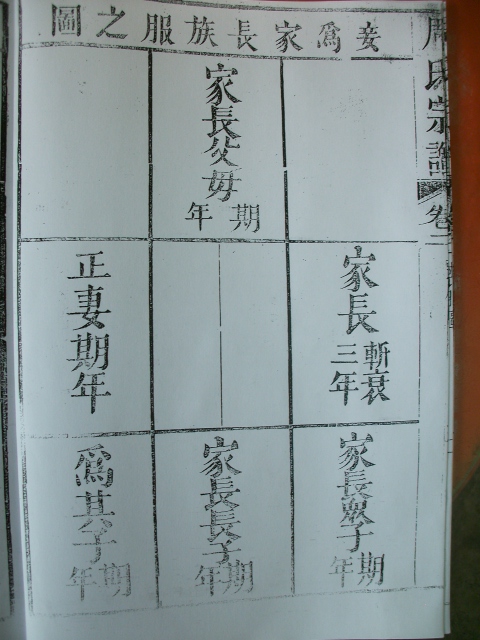 周氏宗譜 卷二
妾爲家長族服之圖
家長父母期年
家長斬衰三年
正妻期年
家長眾子期年
家長長子期年
爲其子期年